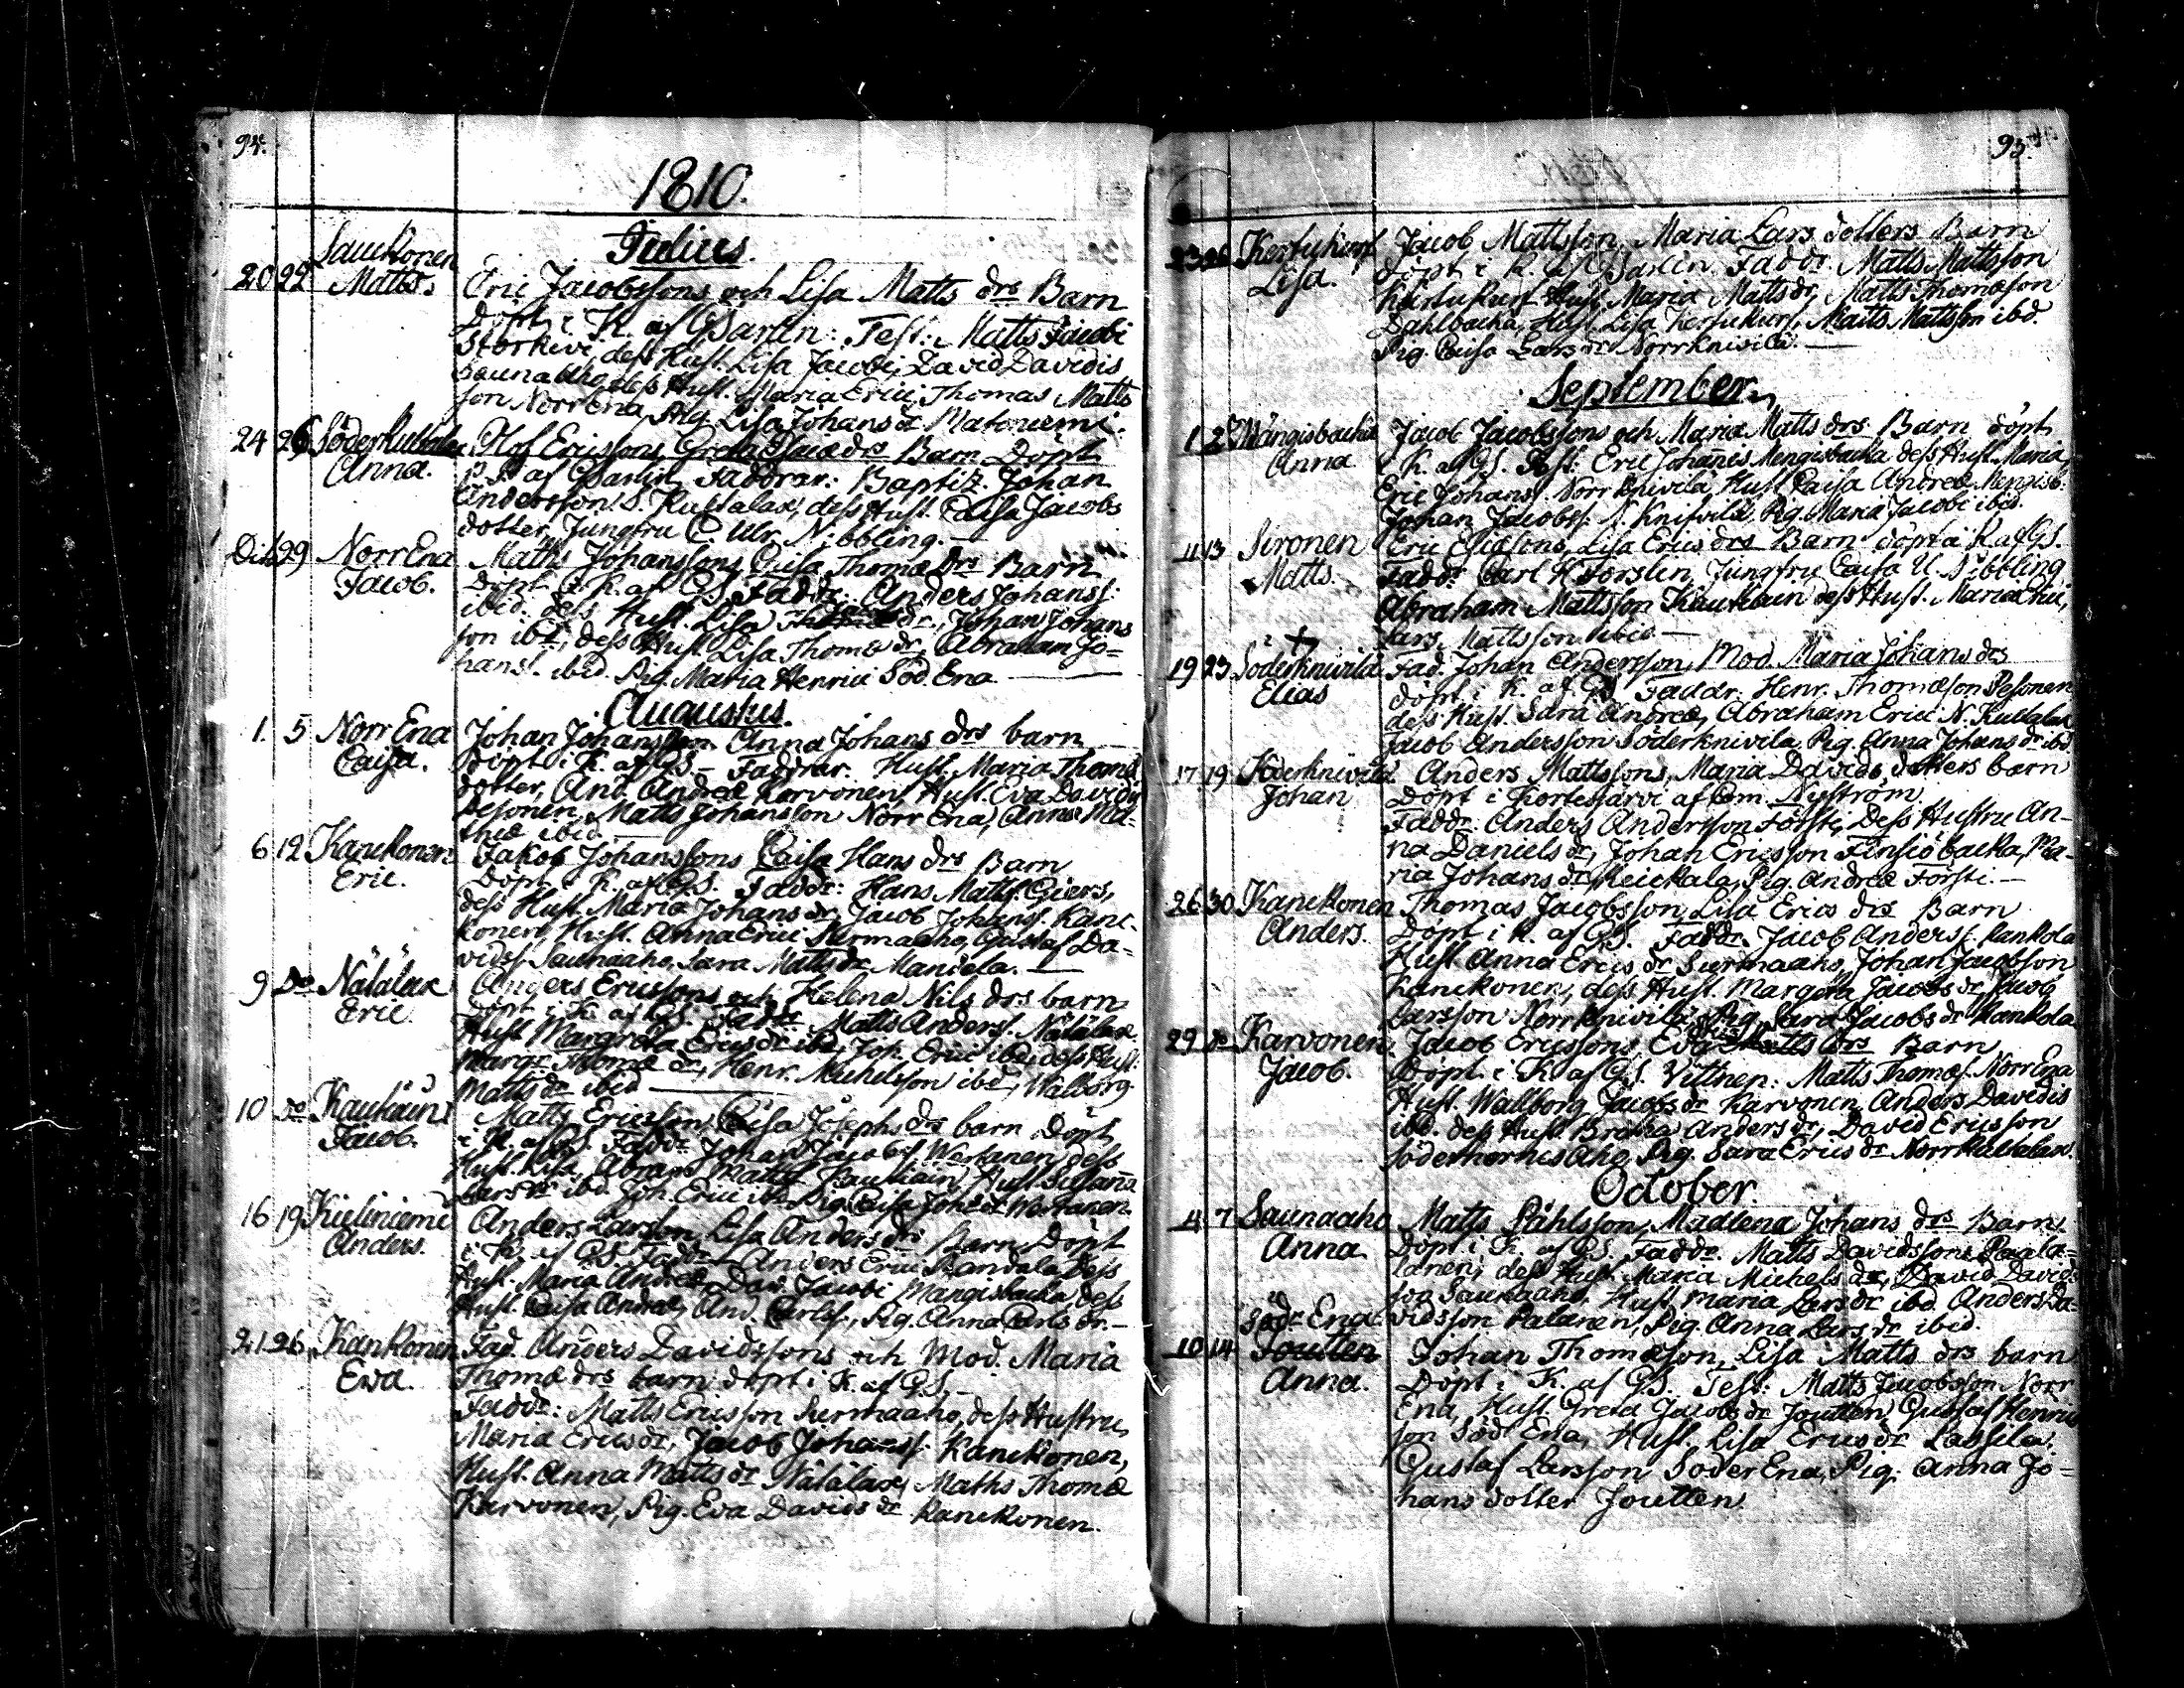 94.
1810.
Julius.
20 22 Sauckonen
Matts.
Eric Jacobssons och Lisa Matts drs Barn
Döpt i K. af GSarlin: Test: Matts Jacobi
Storkivi, dess Hust. Lisa Jacobi, David Davidis
Saunaaho, dess Hust. Maria Erici, Thomas Matts
son Norr Ena, Pig. Lisa Johans dr Matoniemi.
24 26 Söderkultalax
Anna.
Olof Ericssons, Greta Isaci drs Barn Döpt
p. P. af GSarlin, Faddrar: Baptiz. Johan
Andersson S. Kultalax, dess Hust. Caisa Jacobs
dotter, Jungfru C. Ulr. Nibbling.
Dito 29 Norr Ena
Jacob.
Matts Johanssons Caisa Thomæ drs Barn
Döpt i K. af GS. Faddr: Anders Johanss:
ibid: dess Hust. Lisa dr, Johan Johans
son ibd, dess Hust. Lisa Thomæ dr, Abraham Jo=
hanss. ibid. Pig. Maria Henrici Söd. Ena
Augustus.
1. 5 Norr Ena
Caisa.
Johan Johansson Anna Johans drs barn
Döpt i K. af GS - Faddrar. Hust. Maria Thomæ
dotter, And. Andreæ Karvonen, Hust. Eva Davidis
Pesonen, Matts Johansson Norr Ena, Anna Ma-
thiæ ibid
6 12 Kanckonen
Eric.
Jakob Johanssons Caisa Hans drs Barn
Döpt i K. af GS. Faddr: Hans Matts. Giers,
dess Hust. Maria Johans dr, Jacob Johanss. Kanc-
konen, Hust. Anna Erici Surmaaho, Gustaf Da-
vidss. Saunaaho, Sara Matts dr Mandela.
9 do Nätälax
Eric.
Anders Ericssons och Helena Nils drs barn
Döpt i K. af GS. Faddr Matts Anderss. Nätälax
Hust. Margreta Erics dr ibd, Joh. Erici ibd, dess Hust:
Margr. Thomæ dr, Henr. Michelsson ibd, Walborg
Matts dr ibid
10 do Kaukain
Jacob.
Matts Ericsson, Caisa Josephs drs barn Döpt
i K. af GS. Faddr Johan Jacobss. Wertanen, dess
Hust. Lisa, Abram Matts. Kaukain, Hust. Susanna
Lars dr ibd. Joh. Erici ibd Pig. Caisa Johs dr Wertanen.
16 19 Kieliniemi
Anders.
Anders Larsson, Lisa Anders drs Barn Döpt
i K. af GS. Faddr Anders Erici Randala, Dess
Hust. Maria Andreæ, Dav. Jacobi Mangisbacka, dess
Hust. Caisa Andreæ, And. Carlss., Pig. Anna Carls dr.
21. 26. Kankonen
Ewa.
Fad. Anders Davidssons och Mod. Maria
Thomæ drs barn döpt i K. af GS.
Faddr: Matts Ericsson Surmaaho, dess Hustru
Maria Erics dr, Jacob Johanss. Kanckonen,
Hust. Anna Matts dr Nätälax, Maths Thomæ
Karvonen, Pig. Eva Davids dr Kanckonen.
95.
23 26 Kertukurf
Lisa.
Jacob Mattsson, Maria Lars dotters Barn
Döpt i K. af GSarlin. Faddr. Matts Mattsson
Kärtukurf Hust. Maria Matts dr, Matts Thomæson
Dahlbacka, Hust. Lisa Kertukurf, Matts Mattsson ibd.
Pig. Caisa Lars dr Norrknivila.
September.
1 2 Mängisbacka
Anna
Jacob Jacobssons och Maria Matts drs Barn döpt
i K. af GS. Test: Eric Johannes Mengisbacka dess Hust. Maria,
Eric Johanss. Norrknivila, Hust. Caisa Andreæ Mengisb.
Johan Jacobss. N. Knifvila, Pig. Maria Jacobi ibid.
11 13 Sironen
Matts.
Eric Eliæsons, Lisa Erics drs Barn döpt i K. af GS.
Faddr Carl H. Forslin, Jungfru Caisa U. Nibbling
Abraham Mattsson Kaukain dess Hust. Maria Erici,
Lars Mattsson ibid
19 23 Söderknivila
Elias
Fad. Johan Andersson, Mod. Maria Johans drs
döpt i K. af GS. Faddr: Henr. Thomæson Pesonen
dess Hust. Sara Andreæ, Abraham Erici N. Kultalax
Jacob Andersson Söderknivila, Pig. Anna Johans dr ibd.
17 19 Söderknivila
Johan
Anders Mattssons, Maria Davids dotters barn
Döpt i Kortesjärvi af Com. Nyström
Faddr. Anders Andersson Försti, Dess Hustru An-
na Daniels dr, Johan Ericsson Finsiöbacka, Ma-
ria Johans dr Meickala, Pig. Andreæ Försti.
26 30 Kanckonen
Anders.
Thomas Jacobsson, Lisa Erics drs Barn
Döpt i K. af GS. Faddr. Jacob Anderss. Kankola
Hust. Anna Erics dr Surmaaho, Johan Jacobsson
Kanckonen, dess Hust. Margeta Jacobs dr, Jacob
Larsson Norrknivila, Pig. Sara Jacobs dr Kankola
29 do Karvonen
Jacob.
Jacob Ericssons Eva Matts drs Barn
Döpt. i K. af GS. Vittnen: Matts Thomæs. Norr Ena
Hust. Wallborg Jacobs dr Karvonen, Anders Davidis
ibd. dess Hust. Brita Anders dr, David Ericsson
Söderhornis Aho, Pig. Sara Erics dr Norrkultalax.
October.
4 7 Saunaaho
Anna.
Matts Påhlsson, Madlena Johans drs Barn,
Döpt i K. af GS. Faddr. Matts Davidssons Paala=
lanen, dess Hust. Maria Michels dr, David Davids
son Saunaaho, Hust. Maria Lars dr ibd. Anders Da-
vidsson Palanen, Pig. Anna Lars dr ibid.
10 14 Södr Ena
Joutten
Anna.
Johan Thomæson, Lisa Matts drs barn
Döpt i K. af GS. Test: Matts Jacobsson Norr
Ena, Hust. Greta Jacobs dr Joutten, Gustaf Henrics
son Söd Ena, Hust. Lisa Erics dr Lassila,
Gustaf Larsson Söder Ena, Pig. Anna Jo=
hans dotter Joutten.